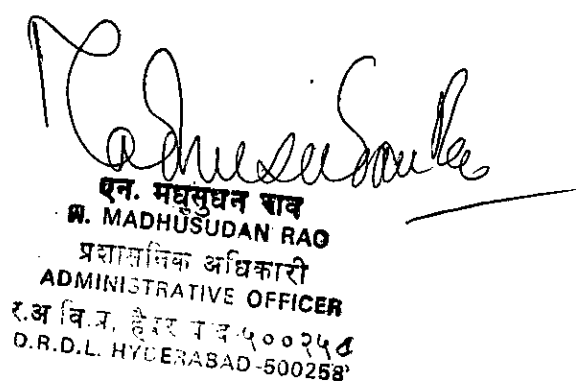 Madhusudan Rao
एन. मधुसुधन राव
N. MADHUSUDAN RAO
प्रशासनिक अधिकारी
ADMINISTRATIVE OFFICER
र.अ वि.प्र, ५००२५८
D.R.D.L. HYDERABAD-500258